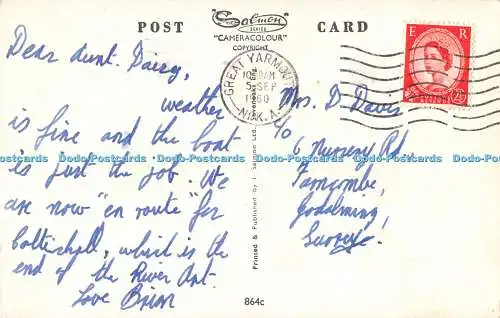 POST
Salmon
SERIES
"CAMERACOLOUR"
COPYRIGHT
CARD
Dear Aunt. Daisy,
weather
is fine and the boat
is just the job. We
are now "en route" for
Coltishall, which is the
end of the River Ant.
Love Brian
GREAT YARMOUTH
10.30AM
5 SEP
1960
E R
2½D
Mrs. D Davis
c/o
6 Nursery Rd.
Farncombe,
Godalming,
Surrey.
Printed & Published by J. Salmon Ltd., Sevenoaks Eng.
864c
Dodo-Postcards Dodo-Postcards Dodo-Postcards Dodo-Postcards Dodo-Postcards Dodo-Postcards